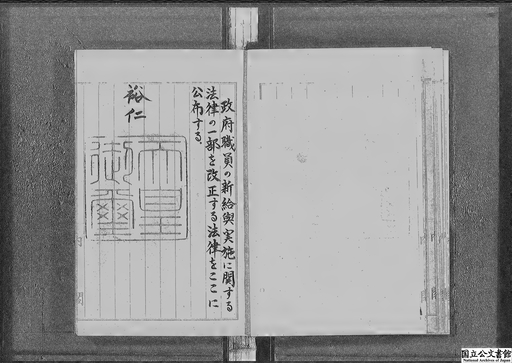 政府職員の新給與実施に関する
法律の一部を改正する法律をここに
公布する。
裕仁
天皇
御璽
国立公文書館
National Archives of Japan